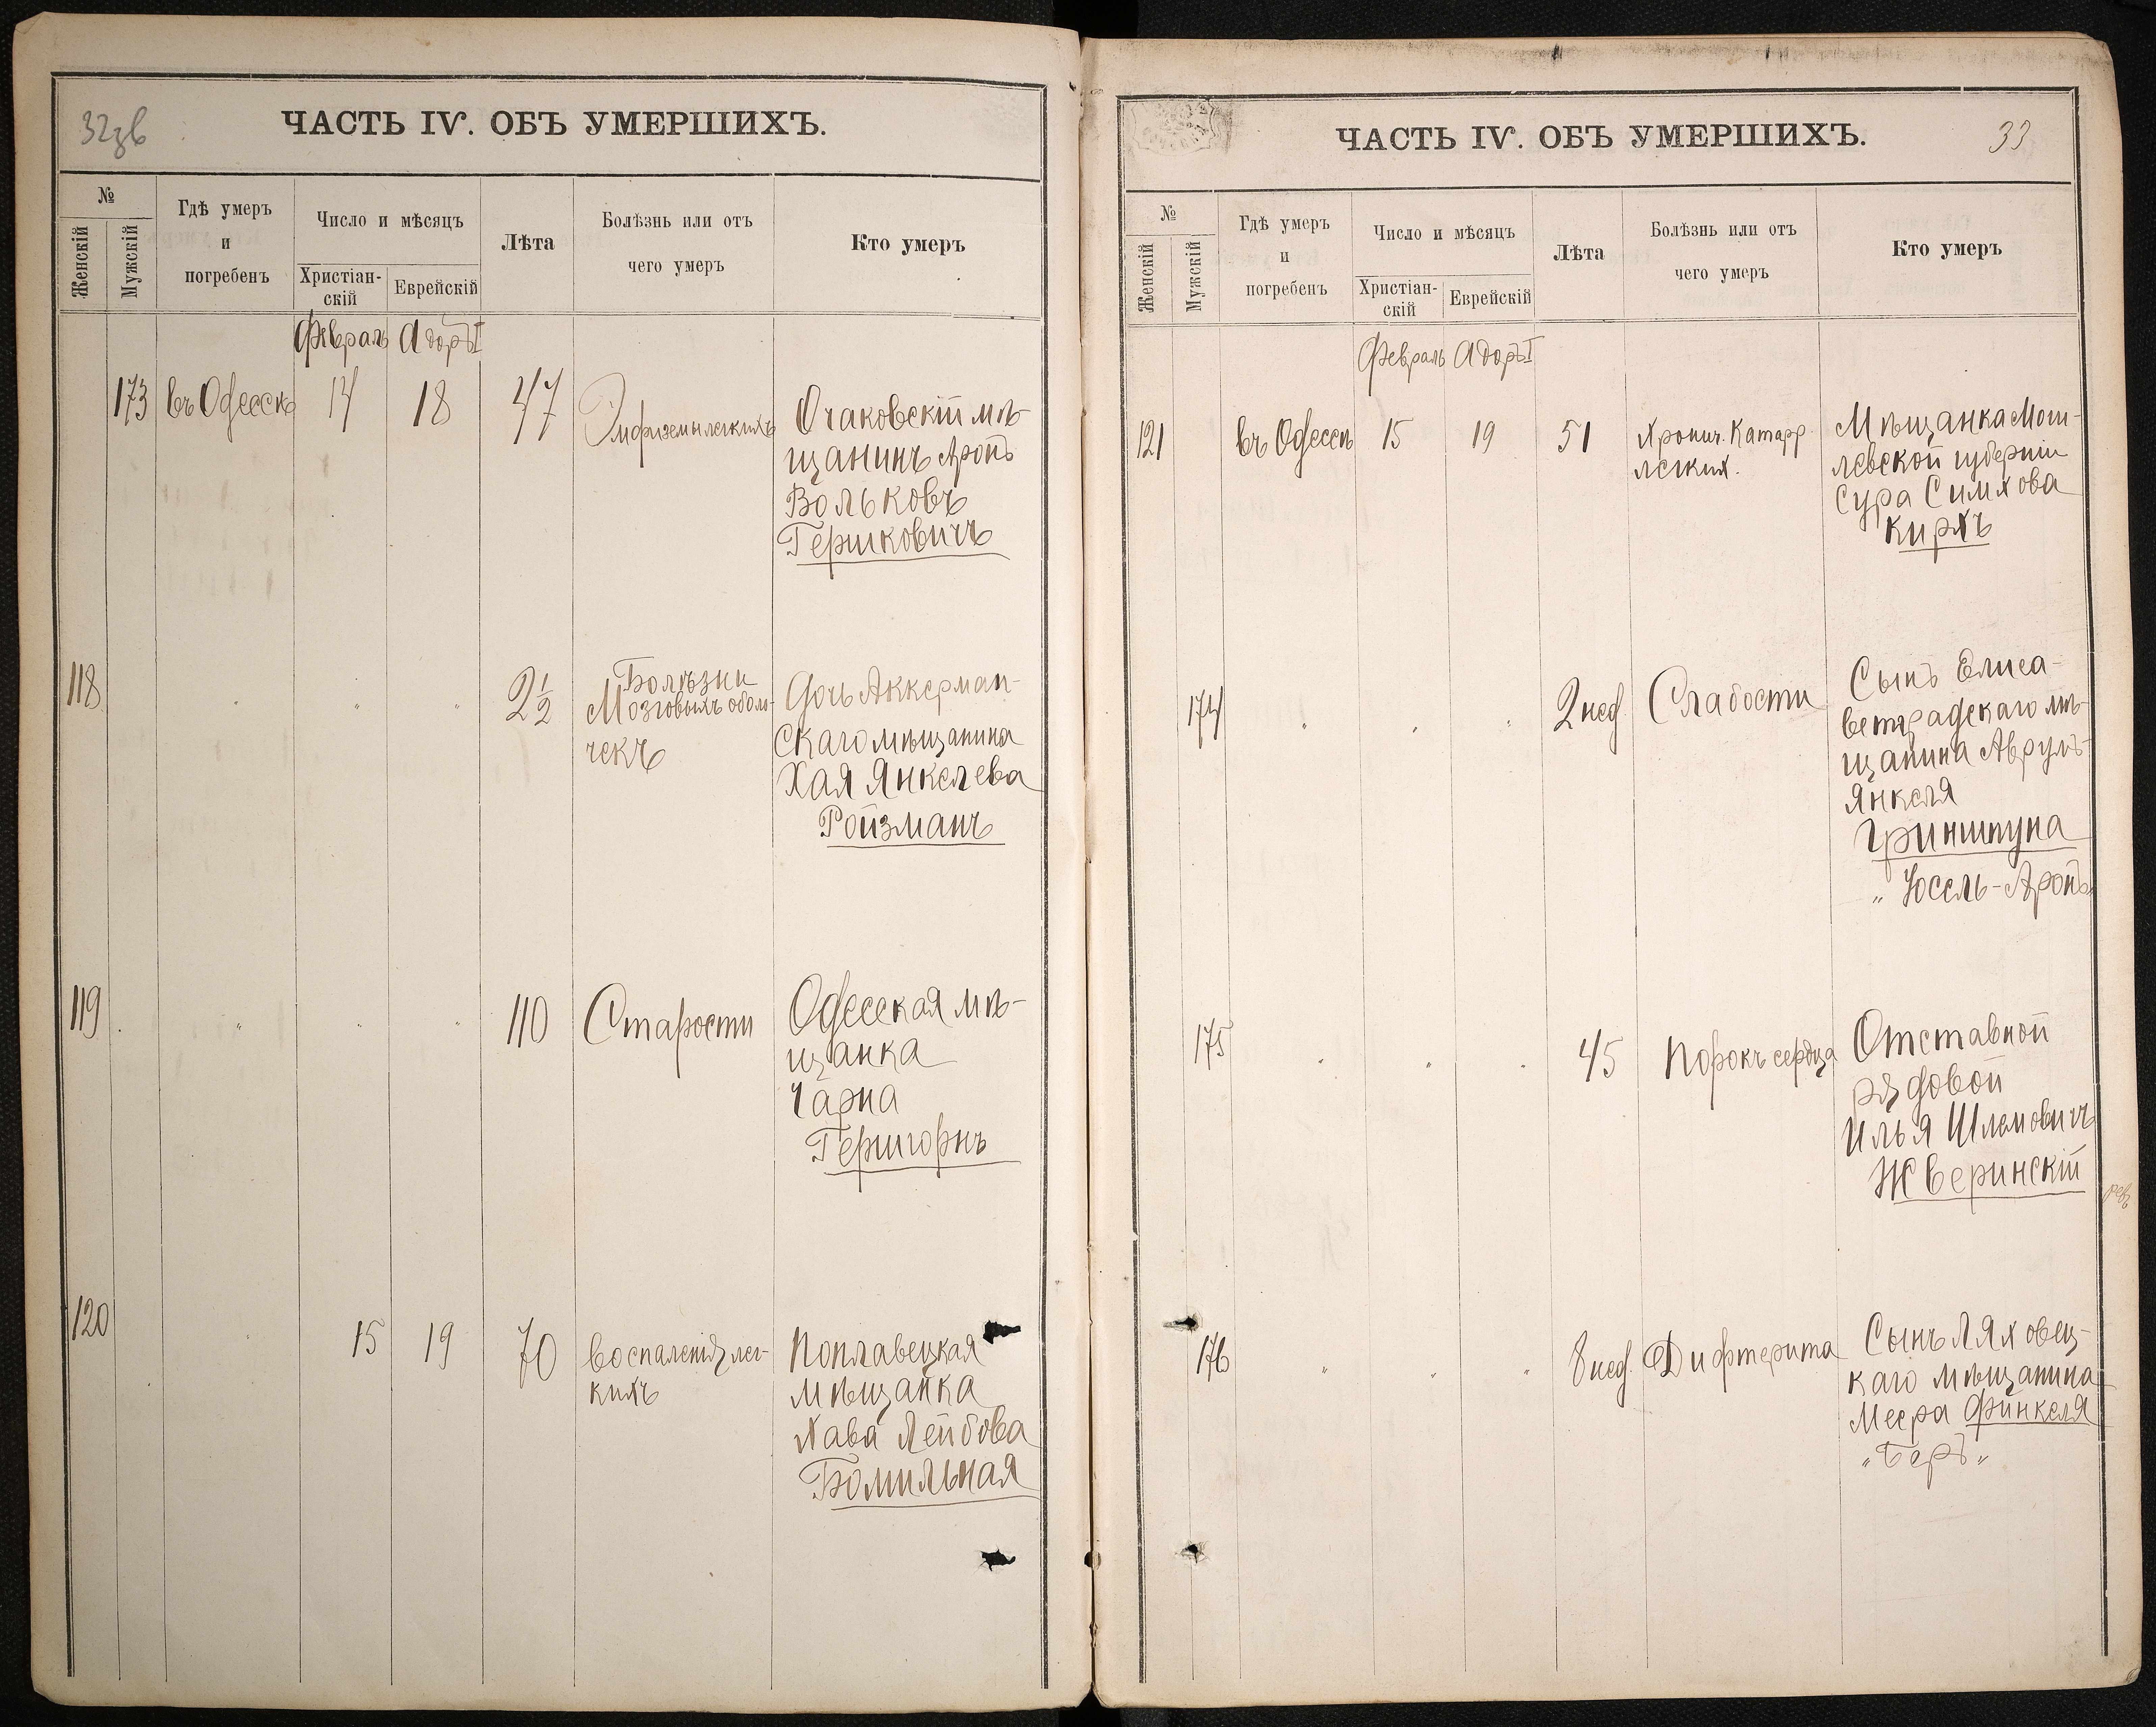 32зв
ЧАСТЬ IV. ОБЪ УМЕРШИХЪ.
№
Женскій
Мужскій
Гдѣ умеръ
и
погребенъ
Число и мѣсяцъ
Христіан-
скій
Еврейскій
Лѣта
Болѣзнь или отъ
чего умеръ
Кто умеръ
Февраль Адоръ I
173 въ Одессѣ 14 18 47 Эмфиземы легкихъ
Очаковскій мѣ-
щанинъ Аронъ
Вольковъ
Гершковичъ
118 " " " 2½ Болѣзни
Мозговыхъ оболо-
чекъ
Дочь Аккерман-
скаго мѣщанина
Хая Янкелева
Ройзманъ
119 " " " 110 Старости
Одесская мѣ-
щанка
Чарна
Геригорнъ
120 15 19 70 Воспаленія лег-
кихъ
Поплавецкая
мѣщанка
Хава Лейбова
Бомильная
ЧАСТЬ IV. ОБЪ УМЕРШИХЪ.
33
№
Женскій
Мужскій
Гдѣ умеръ
и
погребенъ
Число и мѣсяцъ
Христіан-
скій
Еврейскій
Лѣта
Болѣзнь или отъ
чего умеръ
Кто умеръ
Февраль Адоръ I
121 въ Одессѣ 15 19 51 Хронич. Катарр
легких.
Мѣщанка Моги-
левской губерніи
Сура Симхова
Кирхъ
174 " " " 2 нед. Слабости
Сынъ Елиса-
ветградскаго мѣ-
щанина Аврумъ-
Янкеля
Гриншпуна
"Іосель-Аронъ
175 " " " 45 Порокъ сердца
Отставной
рядовой
Илья Шлемовичъ
Жверинскій
176 " " " 8 нед. Дифтерита
Сынъ Ляховец-
каго мѣщанина
Меера Финкеля
"Беръ"